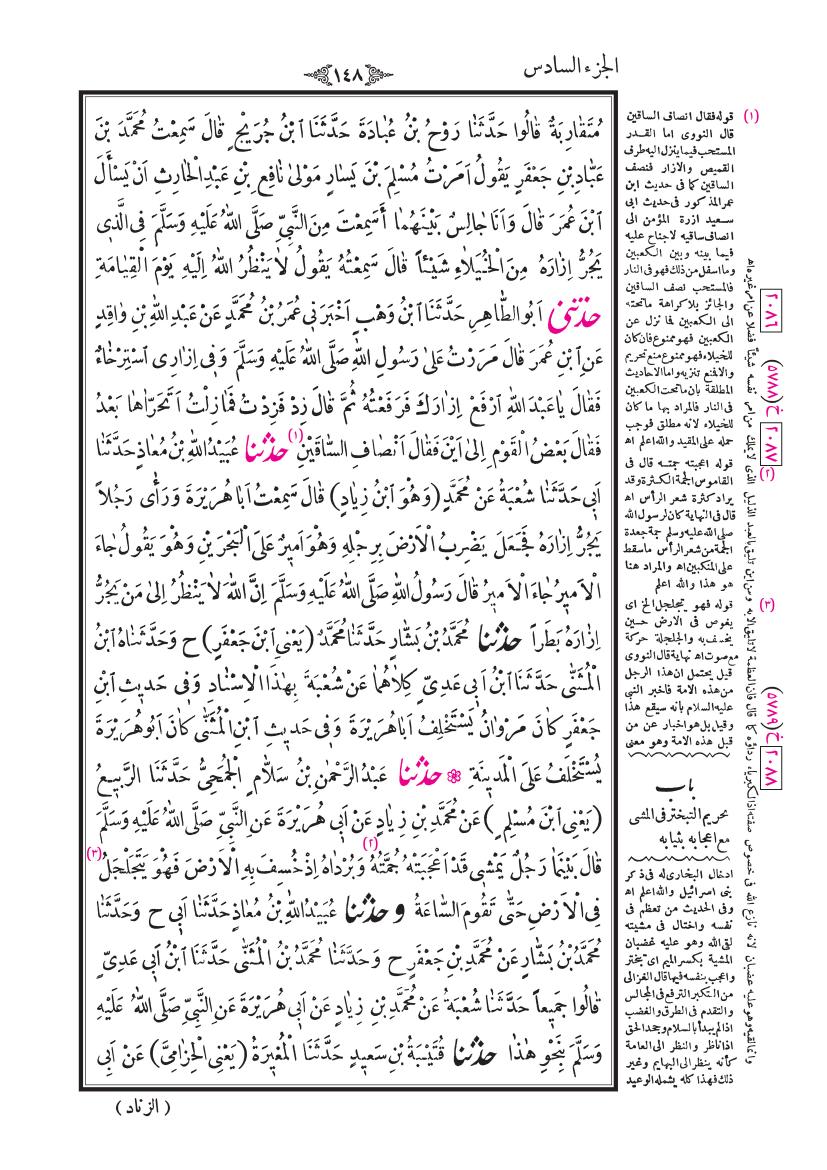 الجزء السادس
١٤٨
مُتَقَارِبَةٌ قَالُوا حَدَّثَنَا رَوْحُ بْنُ عُبَادَةَ حَدَّثَنَا ابْنُ جُرَيْجٍ قَالَ سَمِعْتُ مُحَمَّدَ بْنَ
عَبَّادِ بْنِ جَعْفَرٍ يَقُولُ اَمَرْتُ مُسْلِمَ بْنَ يَسَارٍ مَوْلىٰ نَافِعِ بْنِ عَبْدِ الْحَارِثِ اَنْ يَسْأَلَ
ابْنَ عُمَرَ قَالَ وَاَنَا جَالِسٌ بَيْنَهُمَا أَسَمِعْتَ مِنَ النَّبِيِّ صَلَّى اللّٰهُ عَلَيْهِ وَسَلَّمَ فِى الَّذِى
يَجُرُّ اِزَارَهُ مِنَ الْخُيَلَاءِ شَيْئاً قَالَ سَمِعْتُهُ يَقُولُ لَا يَنْظُرُ اللّٰهُ اِلَيْهِ يَوْمَ الْقِيَامَةِ
حَدَّثَنِى اَبُو الطَّاهِرِ حَدَّثَنَا ابْنُ وَهْبٍ اَخْبَرَنِى عُمَرُ بْنُ مُحَمَّدٍ عَنْ عَبْدِ اللّٰهِ بْنِ وَاقِدٍ
عَنِ ابْنِ عُمَرَ قَالَ مَرَرْتُ عَلىٰ رَسُولِ اللّٰهِ صَلَّى اللّٰهُ عَلَيْهِ وَسَلَّمَ وَفِى اِزَارِى اسْتِرْخَاءٌ
فَقَالَ يَا عَبْدَ اللّٰهِ ارْفَعْ اِزَارَكَ فَرَفَعْتُهُ ثُمَّ قَالَ زِدْ فَزِدْتُ فَمَا زِلْتُ اَتَحَرَّاهَا بَعْدُ
فَقَالَ بَعْضُ الْقَوْمِ اِلىٰ اَيْنَ فَقَالَ اَنْصَافِ السَّاقَيْنِ (١) حَدَّثَنَا عُبَيْدُ اللّٰهِ بْنُ مُعَاذٍ حَدَّثَنَا
اَبِى حَدَّثَنَا شُعْبَةُ عَنْ مُحَمَّدٍ (وَهُوَ ابْنُ زِيَادٍ) قَالَ سَمِعْتُ اَبَا هُرَيْرَةَ وَرَأَى رَجُلاً
يَجُرُّ اِزَارَهُ فَجَعَلَ يَضْرِبُ الْاَرْضَ بِرِجْلِهِ وَهُوَ اَمِيرٌ عَلَى الْبَحْرَيْنِ وَهُوَ يَقُولُ جَاءَ
الْاَمِيرُ جَاءَ الْاَمِيرُ قَالَ رَسُولُ اللّٰهِ صَلَّى اللّٰهُ عَلَيْهِ وَسَلَّمَ اِنَّ اللّٰهَ لَا يَنْظُرُ اِلىٰ مَنْ يَجُرُّ
اِزَارَهُ بَطَراً حَدَّثَنَا مُحَمَّدُ بْنُ بَشَّارٍ حَدَّثَنَا مُحَمَّدٌ (يَعْنِى ابْنَ جَعْفَرٍ) ح وَحَدَّثَنَاهُ ابْنُ
الْمُثَنّٰى حَدَّثَنَا ابْنُ اَبِى عَدِىٍّ كِلَاهُمَا عَنْ شُعْبَةَ بِهٰذَا الْاِسْنَادِ وَفِى حَدِيثِ ابْنِ
جَعْفَرٍ كَانَ مَرْوَانُ يَسْتَخْلِفُ اَبَا هُرَيْرَةَ وَفِى حَدِيثِ ابْنِ الْمُثَنّٰى كَانَ اَبُو هُرَيْرَةَ
يُسْتَخْلَفُ عَلَى الْمَدِينَةِ حَدَّثَنَا عَبْدُ الرَّحْمٰنِ بْنُ سَلَّامٍ الْجُمَحِىُّ حَدَّثَنَا الرَّبِيعُ
(يَعْنِى ابْنَ مُسْلِمٍ) عَنْ مُحَمَّدِ بْنِ زِيَادٍ عَنْ اَبِى هُرَيْرَةَ عَنِ النَّبِيِّ صَلَّى اللّٰهُ عَلَيْهِ وَسَلَّمَ
قَالَ بَيْنَمَا رَجُلٌ يَمْشِى قَدْ اَعْجَبَتْهُ جُمَّتُهُ (٢) وَبُرْدَاهُ اِذْ خُسِفَ بِهِ الْاَرْضَ فَهُوَ يَتَجَلْجَلُ (٣)
فِى الْاَرْضِ حَتّٰى تَقُومَ السَّاعَةُ وَحَدَّثَنَا عُبَيْدُ اللّٰهِ بْنُ مُعَاذٍ حَدَّثَنَا اَبِى ح وَحَدَّثَنَا
مُحَمَّدُ بْنُ بَشَّارٍ عَنْ مُحَمَّدِ بْنِ جَعْفَرٍ ح وَحَدَّثَنَا مُحَمَّدُ بْنُ الْمُثَنّٰى حَدَّثَنَا ابْنُ اَبِى عَدِىٍّ
قَالُوا جَمِيعاً حَدَّثَنَا شُعْبَةُ عَنْ مُحَمَّدِ بْنِ زِيَادٍ عَنْ اَبِى هُرَيْرَةَ عَنِ النَّبِيِّ صَلَّى اللّٰهُ عَلَيْهِ
وَسَلَّمَ بِنَحْوِ هٰذَا حَدَّثَنَا قُتَيْبَةُ بْنُ سَعِيدٍ حَدَّثَنَا الْمُغِيرَةُ (يَعْنِى الْحِزَامِىَّ) عَنْ اَبِى
(الزناد)
(١) قوله فقال انصاف الساقين
قال النووى اما القدر
المستحب فيما ينزل اليه طرف
القميص والازار فنصف
الساقين كما فى حديث ابن
عمر المذكور فى حديث ابى
سعيد ازرة المؤمن الى
انصاف ساقيه لاجناح عليه
فيما بينه وبين الكعبين
وما اسفل من ذلك فهو فى النار
فالمستحب نصف الساقين
والجائز بلا كراهة ماتحته
الى الكعبين فما نزل عن
الكعبين فهو ممنوع فان كان
للخيلاء فهو ممنوع منع تحريم
والافمنع تنزيه واما الاحاديث
المطلقة بان ماتحت الكعبين
فى النار فالمراد بها ما كان
للخيلاء لانه مطلق فوجب
حمله على المقيد والله اعلم اه
(٢) قوله اعجبته جمته قال فى
القاموس الجمة الكثرة وقد
يراد كثرة شعر الرأس اه
قال فى النهاية كان لرسول الله
صلى الله عليه وسلم جمة جعدة
الجمة من شعر الرأس ماسقط
على المنكبين اه والمراد هنا
هو هذا والله اعلم
(٣) قوله فهو يتجلجل الخ اى
يغوص فى الارض حين
يخسف به والجلجلة حركة
مع صوت اه نهاية قال النووى
قيل يحتمل ان هذا الرجل
من هذه الامة فاخبر النبى
عليه السلام بأنه سيقع هذا
وقيل بل هو اخبار عن من
قبل هذه الامة وهو معنى
باب
تحريم التبختر فى المشى
مع اعجابه بثيابه
ادخال البخارى له فى ذكر
بنى اسرائيل والله اعلم اه
وفى الحديث من تعظم فى
نفسه واختال فى مشيته
لقى الله وهو عليه غضبان
المشية بكسر الميم اى تبختر
واعجب بنفسه فيها قال الغزالى
من التكبر الترفع فى المجالس
والتقدم فى الطرق والغضب
اذا لم يبدأ بالسلام وجحد الحق
اذا ناظر والنظر الى العامة
كأنه ينظر الى البهايم وغير
ذلك فهذا كله يشمله الوعيد
٢٠٨٦
خ (٥٧٨٨)
٢٠٨٧
خ (٥٧٨٩)
٢٠٨٨